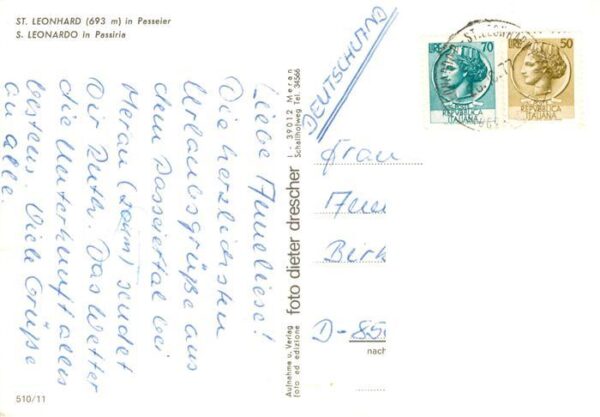 ST. LEONHARD (693 m) in Passeier
S. LEONARDO in Passiria
Liebe Anneliese!
Die herzlichsten
Urlaubsgrüße aus
dem Passeiertal bei
Meran (20 km) sendet
Dir Ruth. Das Wetter
die Unterkunft alles
bestens. Viele Grüße
an alle.
510/11
Aufnahme u. Verlag
foto ed edizione
foto dieter drescher
I - 39012 Meran
Schallhofweg Tel. 34566
DEUTSCHLAND
LIRE 70
REPUBBLICA
ITALIANA
LIRE 50
REPUBBLICA
ITALIANA
Frau
Birk
D-850
nach